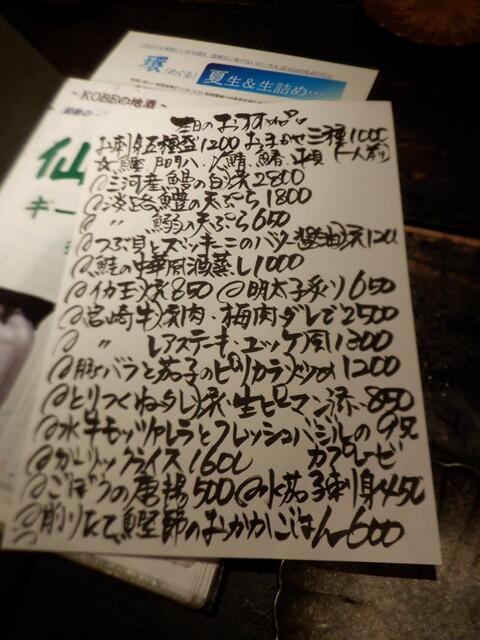 環(めぐる)
夏生&生詰め…
~KOBEの地酒~
仙
ギー
本日のおすすめ
お刺身五種盛1200 おまかせ三種1000
☆鰹 八 鯖 (一人前)
@三河産鰻の白焼2800
@淡路鱧の天ぷら1800
@ 〃 鰯の天ぷら650
@つぶ貝とズッキーニのバター醤油焼120
@鮭の中華風酒蒸し1000
@イカ玉焼850 @明太子炙り650
@宮崎牛 肉・梅肉ダレで2500
@ 〃 レアステーキ・ユッケ風1300
@豚バラと茄子のピリカラ 1200
@とりつくね 生ピーマン添 850
@水牛モッツァレラとフレッシュバジルの
カプレーゼ
@ガーリックライス
@ごぼうの唐揚500 @水茄子刺身
@削りたて鰹節のおかかごはん600